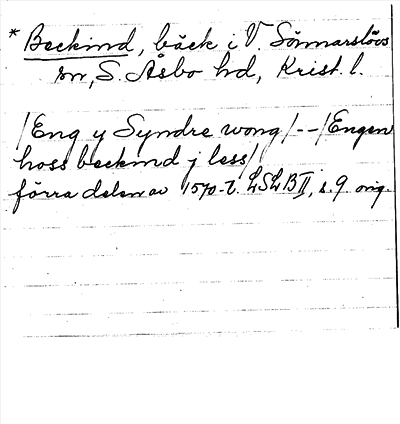 * Beckind, bäck i V. Sönnarslövs
sn, S. Åsbo hd, Krist. l.
/Eng y Syndre wong/--/Engen
hoss beckind j less/
förra delen av 1570-t. LSLB II, s. 9. orig.